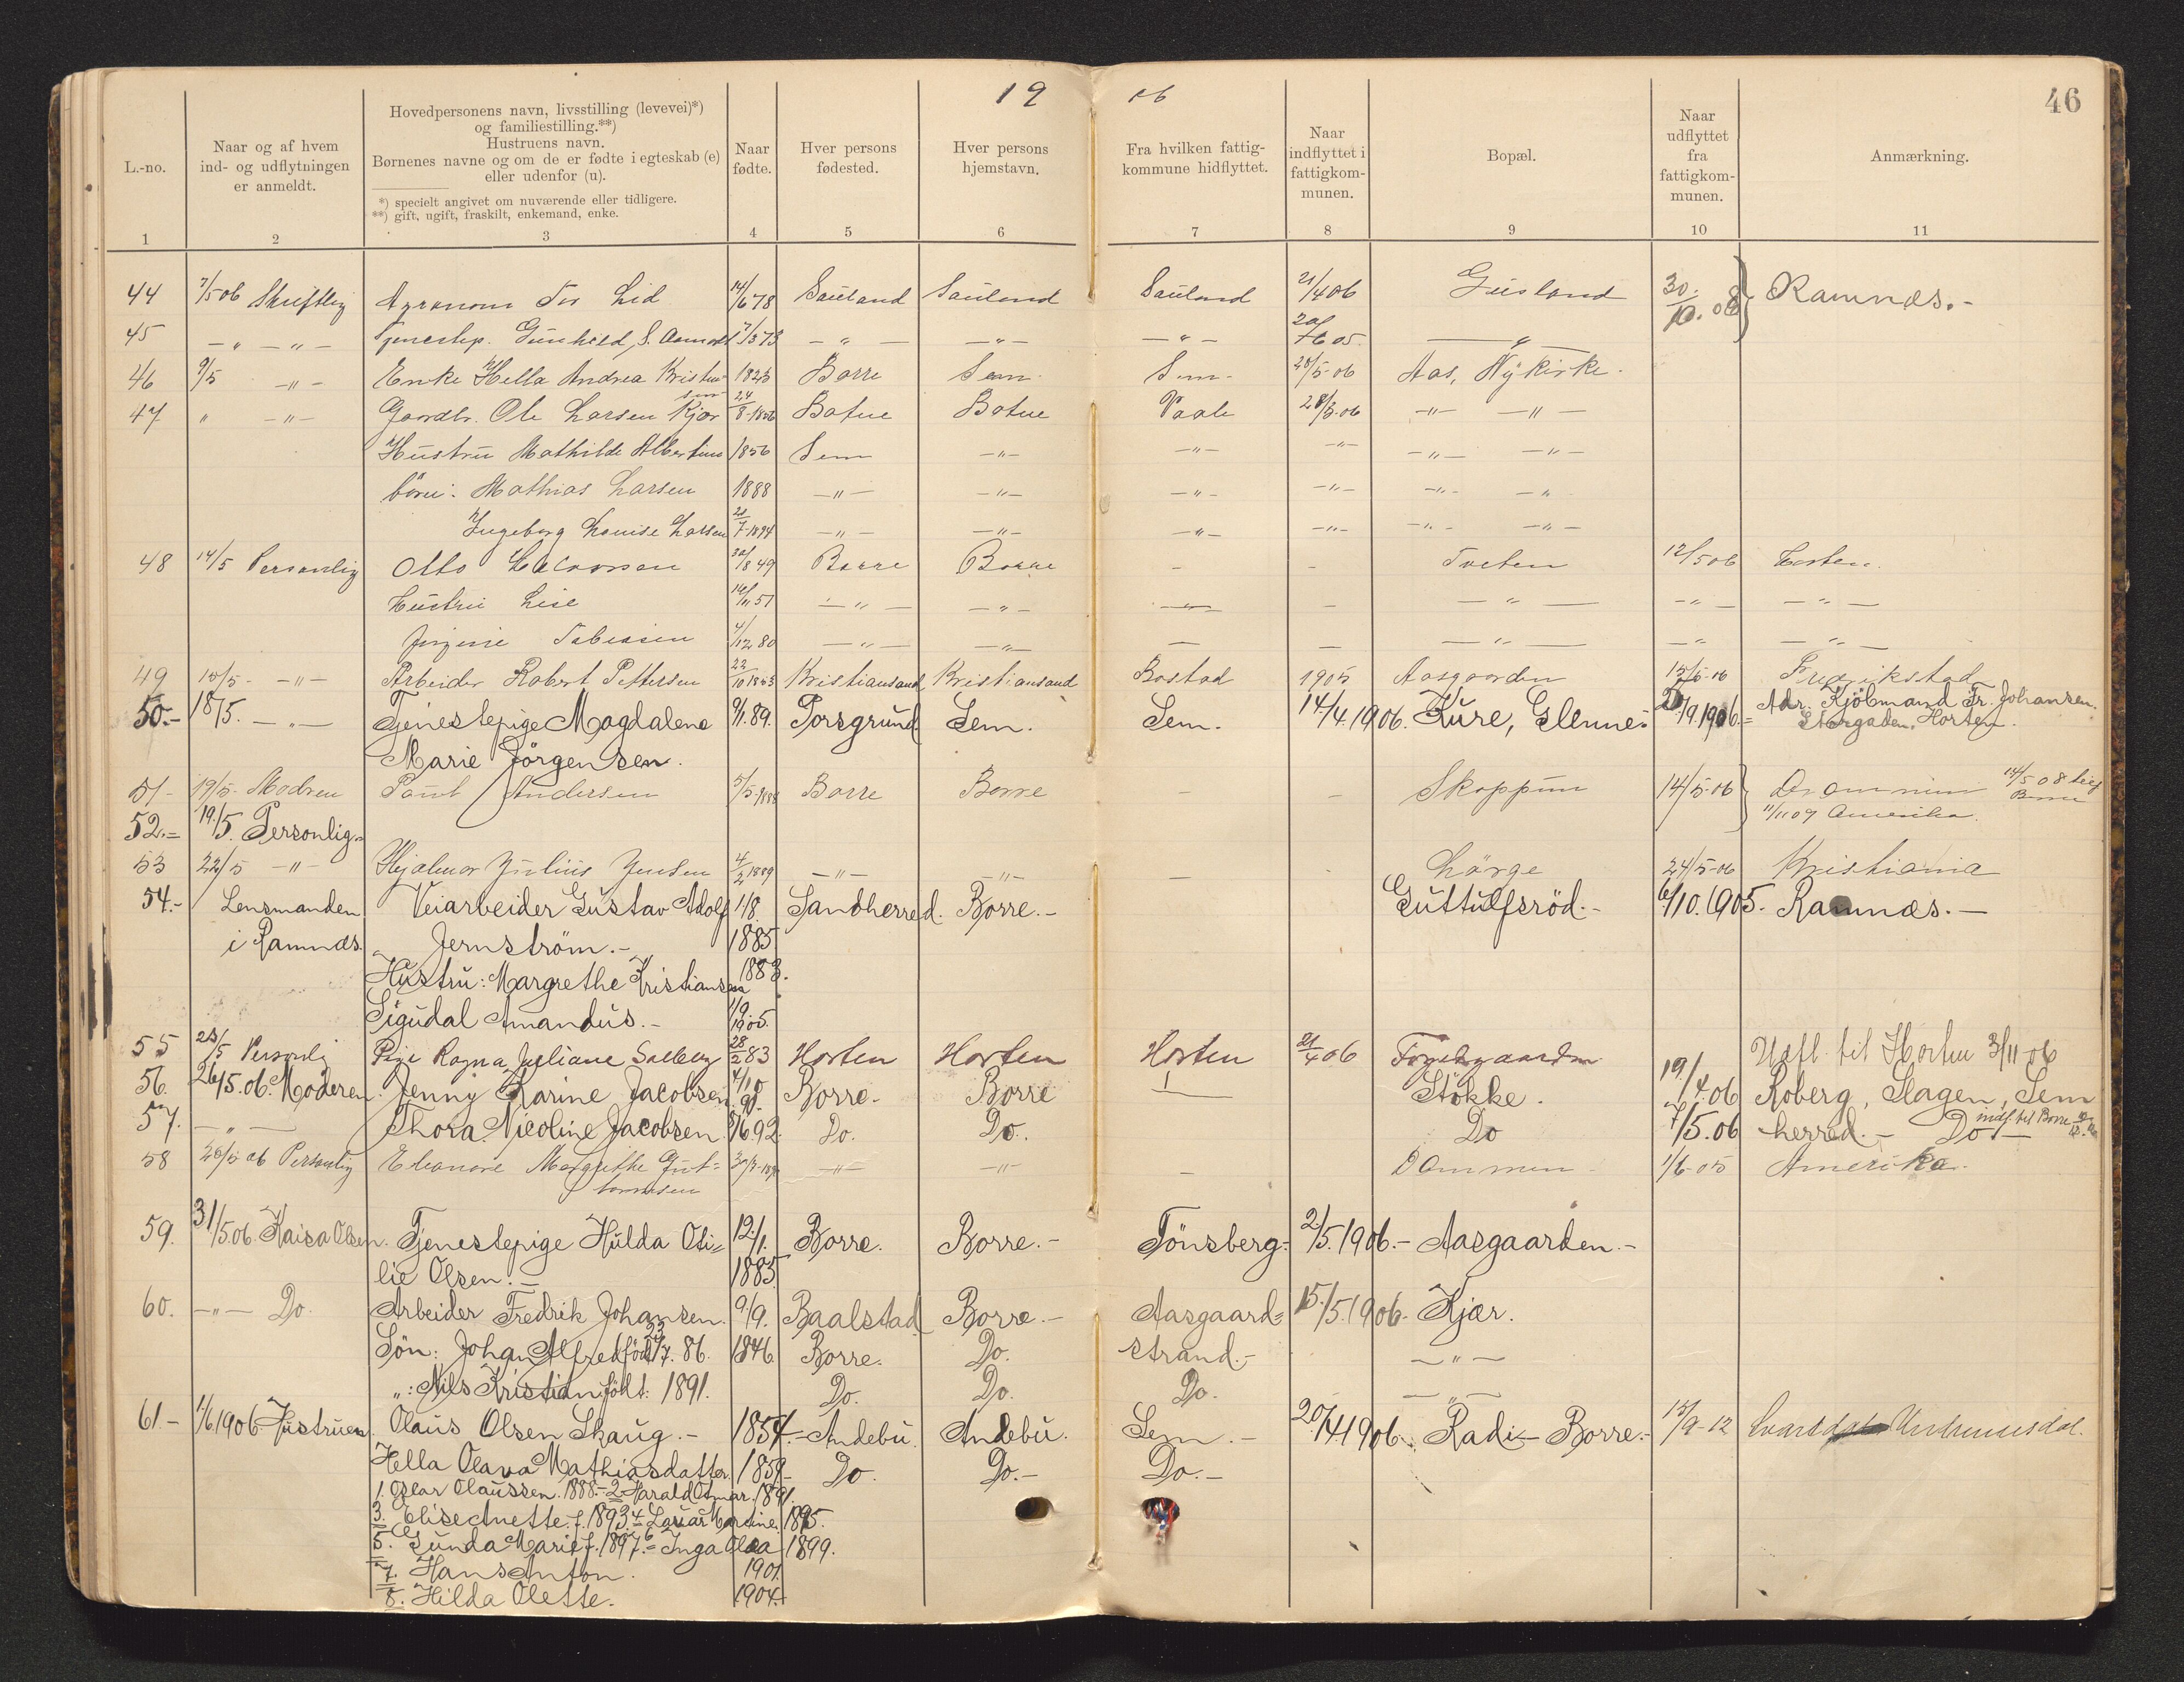 19 06
46
L.-no.
Naar og af hvem
ind- og udflytningen
er anmeldt.
Hovedpersonens navn, livsstilling (levevei)*)
og familiestilling.**)
Hustruens navn.
Børnenes navne og om de er fødte i egteskab (e)
eller udenfor (u).
*) specielt angivet om nuværende eller tidligere.
**) gift, ugift, fraskilt, enkemand, enke.
Naar
fødte.
Hver persons
fødested.
Hver persons
hjemstavn.
Fra hvilken fattig-
kommune hidflyttet.
Naar
indflyttet i
fattigkom-
munen.
Bopæl.
Naar
udflyttet
fra
fattigkom-
munen.
Anmærkning.
1 2 3 4 5 6 7 8 9 10 11
44 7/5 06 Skriftlig Agronom Tor Lid 14/6 78 Sauland Sauland Sauland 21/4 06 30/10.08 Ramnæs.-
45 -„- -„- Gunhild S. -„- -„- -„- -„-
46 9/5 -„- Enke Hella Andrea Kristen- 1823 Borre Sem Sem 28/5-06 Aas, Nykirke.
sen
47 „ -„- Gardbr. Ole Larsen Kjær 24/8-1856 Botne Botne Vaale 28/5-06 -„- -„-
Hustru Mathilde Albertine 1856 Sem -„- -„- -„- -„- -„-
börn: Mathias Larsen 1888 -„- -„- -„- -„- -„- -„-
Ingeborg Louise Larsen 7-1894 -„- -„- -„- -„- -„- -„-
48 14/5 Personlig Otto 30/8 49 Borre Borre - - Tveten 12/5 06 Horten.
Hustru Lise 51 -„- -„- - - -„- -„- -„-
Tobiesen 4/12 80 -„- -„- - - -„- -„- -„-
49 15/5 -„- Arbeider Robert Pettersen 22/10 1863 Kristiansand Kristiansand Bostad 1905 Aasgaarden 15/5-06 Fredrikstad
50.- 18/5. -„- Tjenestepige Magdalene 9/1.89. Porsgrund Sem. Sem. 14/4.1906. Kure, Glenne.- /9.1906.= Adr. Kjöbmand Fr. Johansen.
Storgaden. Horten.
Marie Jörgensen.
51- 19/5- Modren Andersen Borre Borre - - Skoppum 14/5-06 Drammen 14/5 08
52.= 19./5. Personlig= 11/11 09 Amerika.
53 22/5 -„- Hjalmar Julius Jensen 4/2 1889 -„- -„- - Lörge 24/5-06 Kristiania
54.- Lensmanden Veiarbeider Gustav Adolf 1/8. Sandherred. Borre.- Guttulfsröd.- 6/10.1905. Ramnæs.-
i Ramnæs. Jernström.- 1885
Hustru: Margrethe Kristiansen 1883.
Sigudal Amandus.- 1/9. 1905.
55 23/5 Personlig Pige Ragna Juliane Solberg 28/2 83 Horten Horten Horten 21/4 06 Udfl. til Horten 3/11 06
56. 26/5.06. Moderen. Jenny Karine Jacobsen 4/10 90. Borre. Borre Stokke. 19./4.06 Roberg, Slagen, Sem
57. -„- Thora Nicoline Jacobsen. /6.92. Do. Do. Do 7/5.06 herred.- Do - indf. til Borre
58 26/5 06 Personlig Eleanore Margrethe Gut= -„- -„- - Dammen 1/6-05 Amerika.
tormsen
59. 31/5.06. Kaisa Olsen. Tjenestepige Hulda Oti= 12./1. Borre. Borre.- Tönsberg.- 2/5.1906.- Aasgaarden.-
lie Olsen.- 1885
60. -„- Do. Arbeider Fredrik Johansen. 9./9. Baalstad Borre.- Aasgaard= 15./5.1906.- Kjær.
Sön: Johan Alfred född /7.86. 1846. Borre. Do. strand.- -„-
„: Nils Kristian född: 1891. Do. Do. Do. -„-
61.- 1/6.1906. Hustruen. Olaus Olsen Skaug.- 1854.- Andebu. Andebu. Sem.- 20./4.1906. Radi- Borre.- 15/9-12
Hella Olava Mathiasdatter. 1859.- Do. Do.- Do.-
1. Oskar Olaussen. 1888.- 2. Harald Otmar. 1891.
3. Elise Anette. f. 1893. 4. Laura Martine. 1895.
5. Gunda Marie f. 1897.= 6 Inga Olea 1899.
7. Hans Anton. 1901.
8. Hilda Olette. 1904.